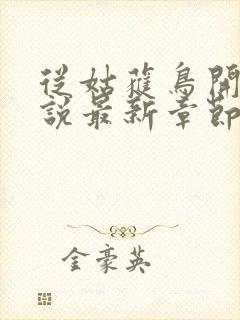 從姑獲鳥開
說最新章節
金豪英